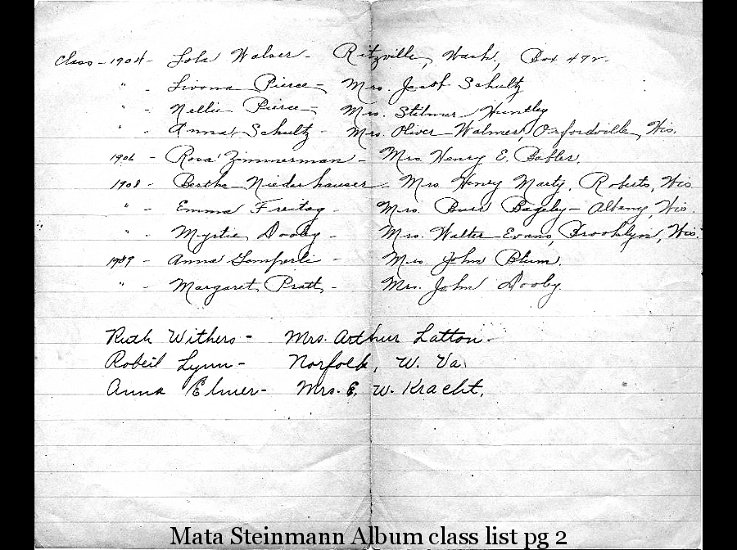 Class - 1904 - Lola Walser - Ritzville, Wash, Box 492.
" - Livona Pierce - Mrs. Jacob Schultz
" - Nellie Pierce - Mrs. Stilman Huntley
" - Anna Schultz - Mrs. Oliver Walmer, Orfordville, Wis.
1906 - Rosa Zimmerman - Mrs Henry E. Babler.
1908 - Bertha Niederhauser - Mrs Henry Marty, Roberts, Wis
" - Emma Freitag - Mrs. Burr Bagley - Albany, Wis.
" - Myrtie Dooby - Mrs. Walter Evans, Brooklyn, Wis.
1909 - Anna - Mrs John Blum.
" - Margaret Pratt - Mrs. John Dooby
Ruth Withers - Mrs. Arthur Latton -
Robert Lynn - Norfolk, W. Va.
Anna Elmer - Mrs. E. W. Kracht.
Mata Steinmann Album class list pg 2